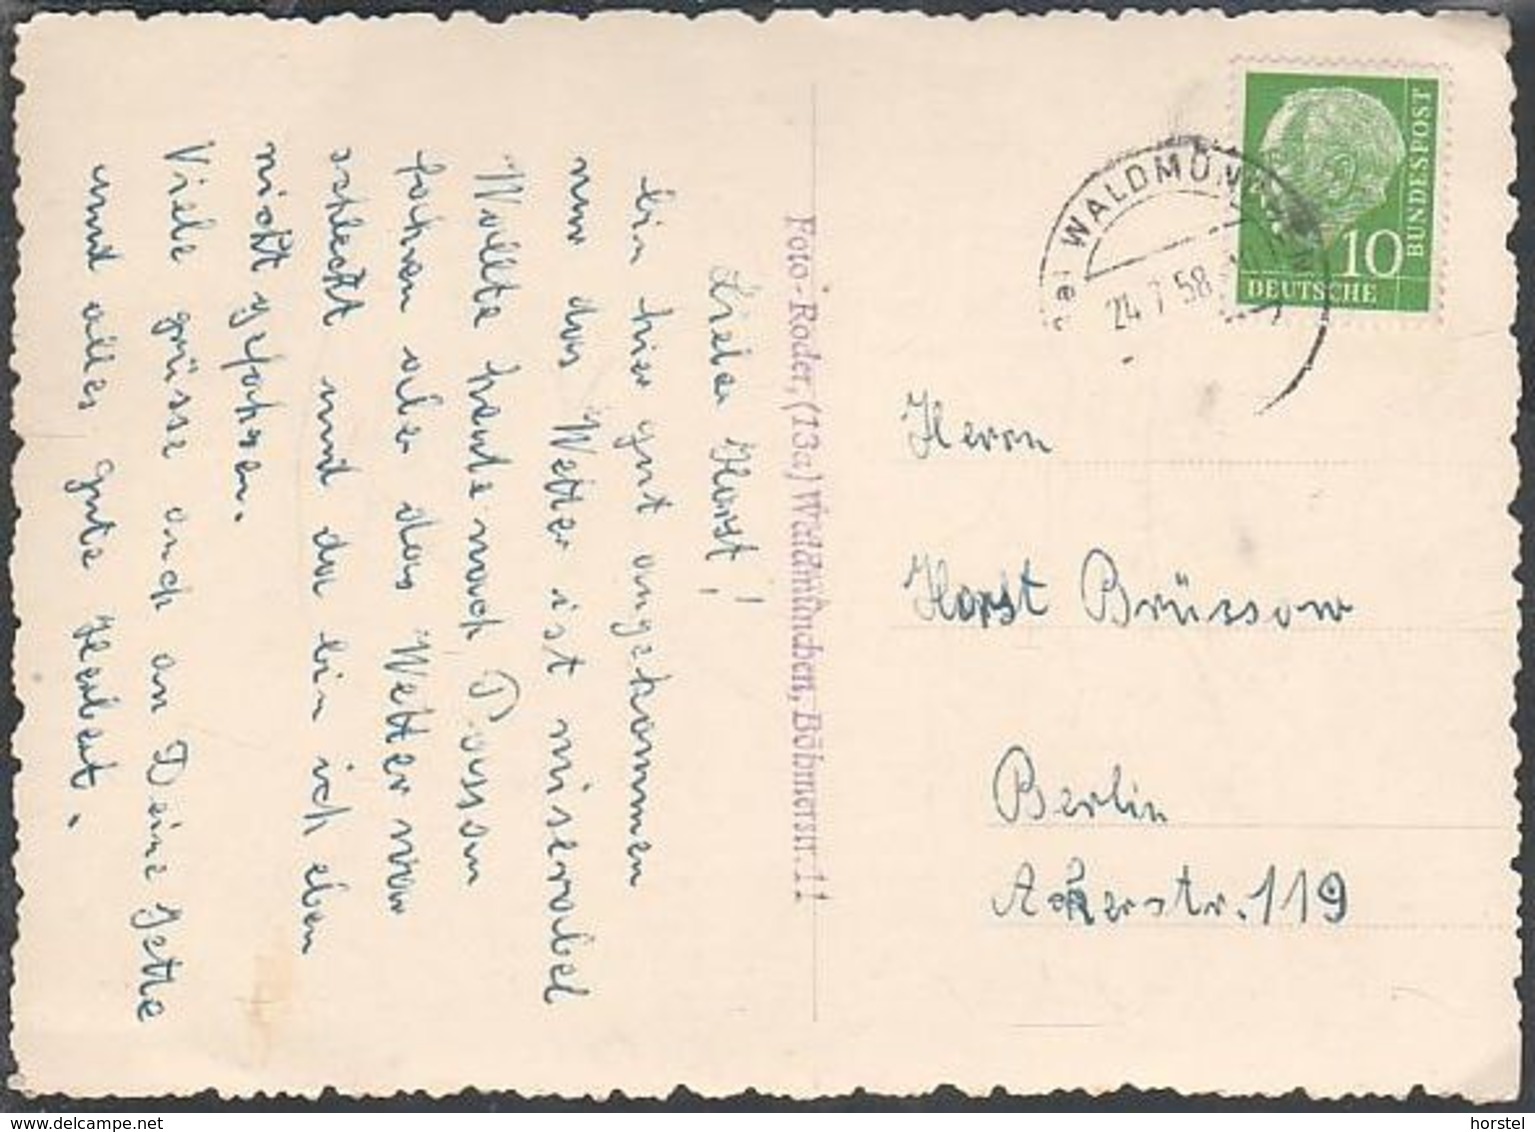 Lieber Horst!
bin hier gut angekommen
nur das Wetter ist miserabel
Wollte heute nach Passau
fahren aber das Wetter war
schlecht und da bin ich eben
nicht gefahren.
Viele grüsse auch an Deine Jette
und alles gute Herbert.
Foto-Roder, (13a) Waldmünchen, Böhmerstr. 11
WALDMÜNCHEN
24 7 58
10
DEUTSCHE
BUNDESPOST
Herrn
Horst Brüssow
Berlin
Ackerstr. 119
www.delcampe.net
horstel